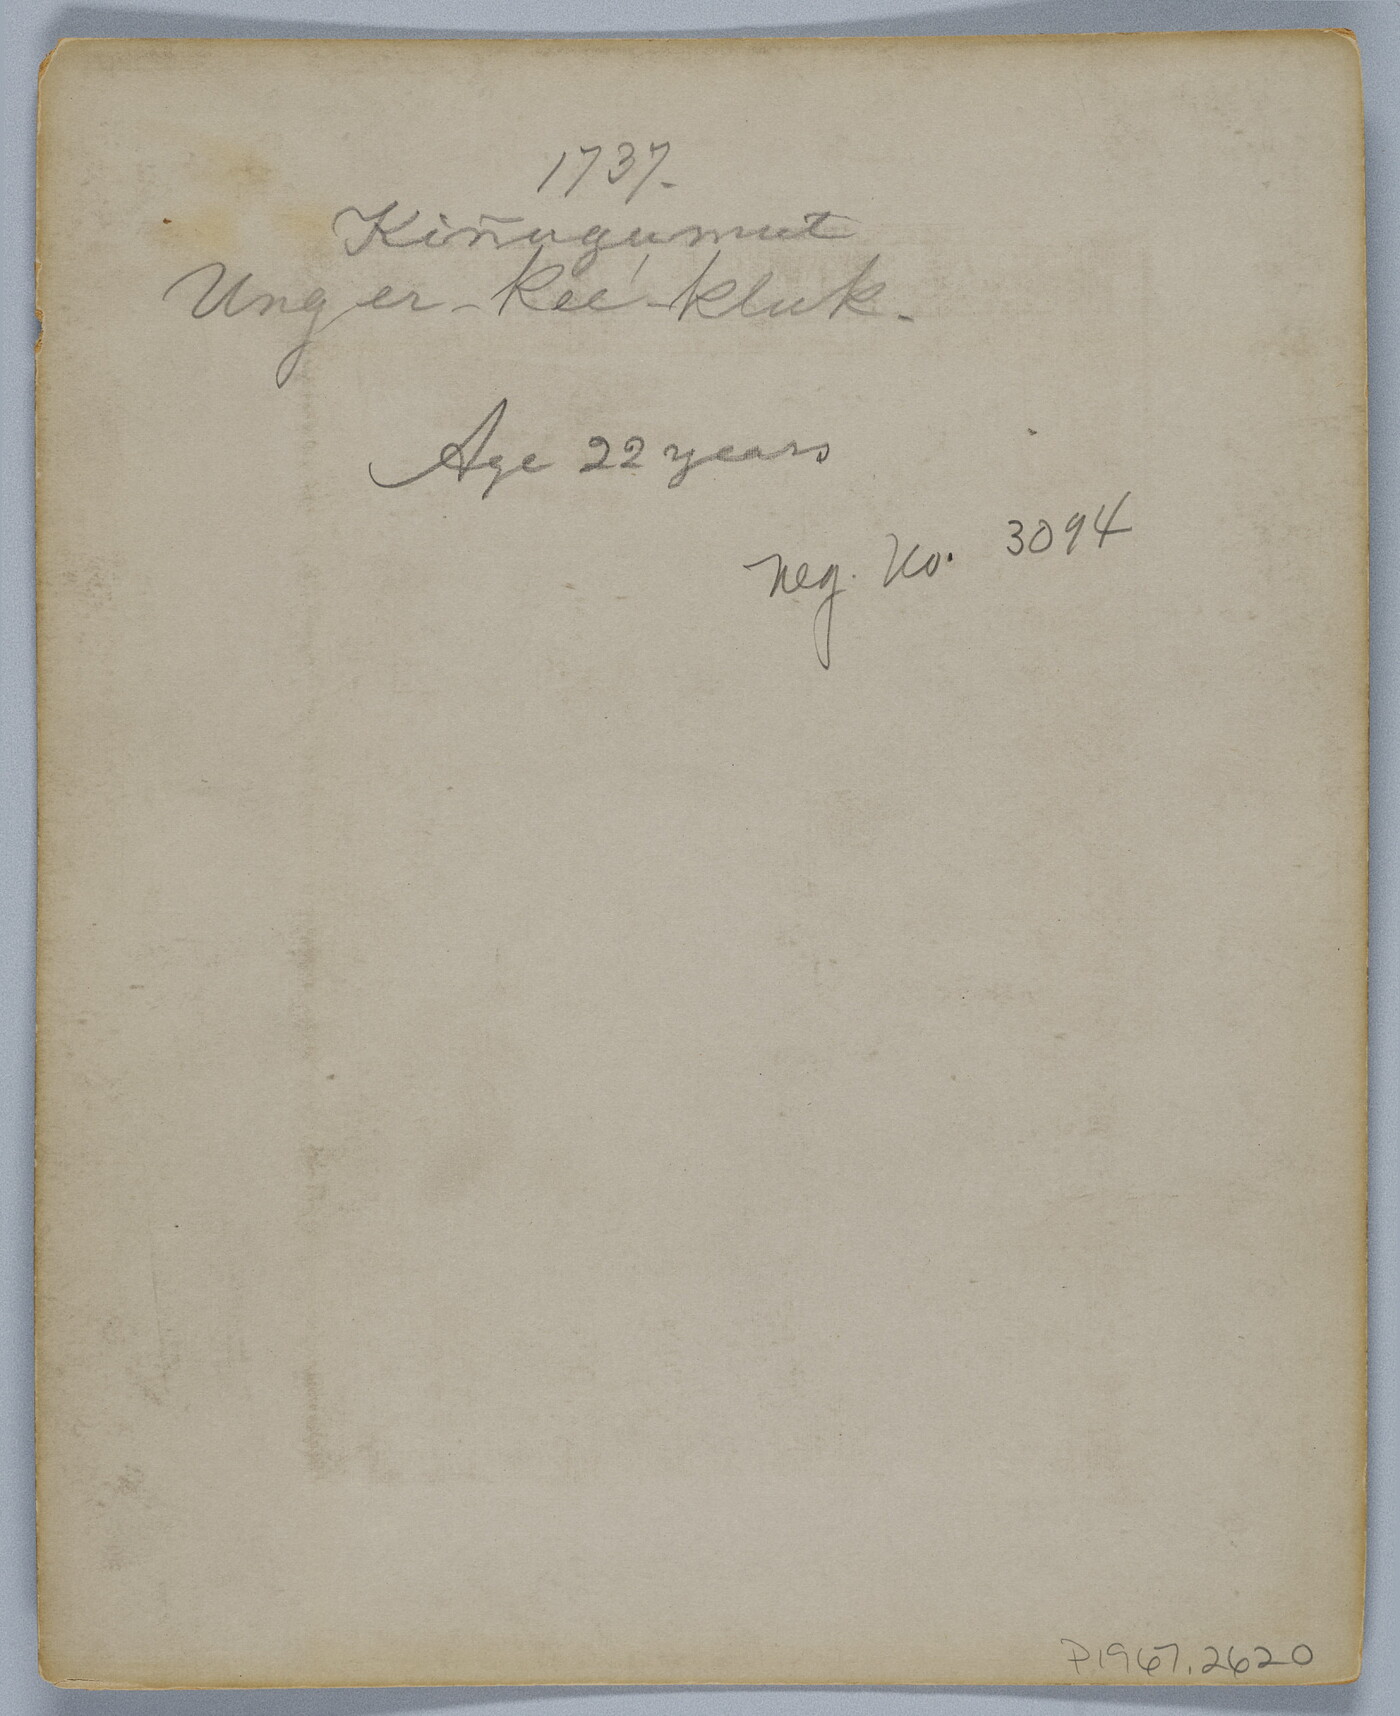 1737.
Kiñugumut
Unger-kee'-kluk.
Age 22 years
Neg. No. 3094
P1967.2620